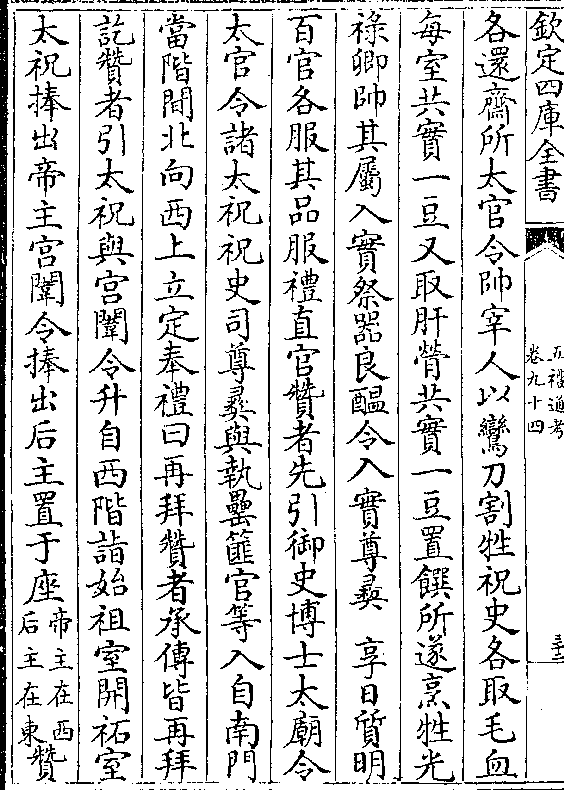 欽定四庫全書
五禮通考
卷九十四
三十二
各還齋所太官令帥宰人以鸞刀割牲祝史各取毛血
每室共實一豆又取肝膋共實一豆置饌所遂烹牲光
祿卿帥其屬入實祭器良醖令入實尊彛　享日質明
百官各服其品服禮直官贊者先引御史博士太廟令
太官令諸太祝祝史司尊彛與執罍篚官等入自南門
當階間北向西上立定奉禮曰再拜贊者承傳皆再拜
訖贊者引太祝與宫闈令升自西階詣始祖室開祏室
太祝捧出帝主宫闈令捧出后主置于座帝主在西后主在東贊